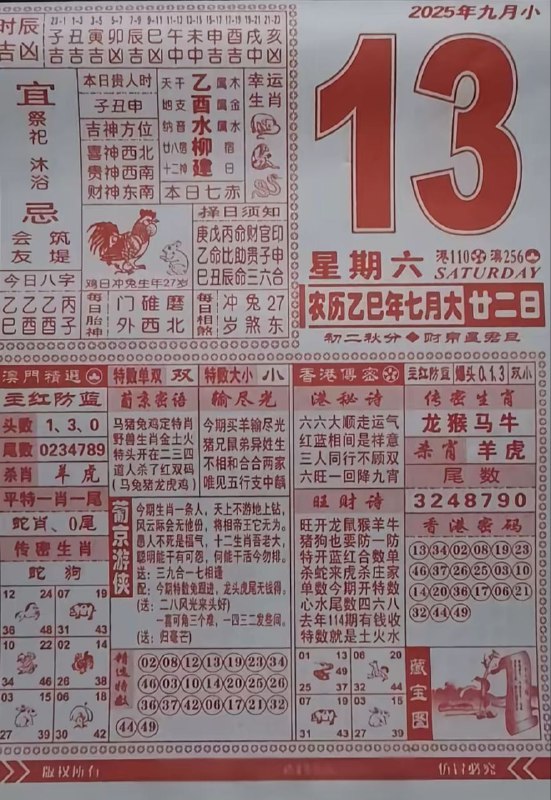 2025年九月小
时辰 23-1 1-3 3-5 5-7 7-9 9-11 11-13 13-15 15-17 17-19 19-21 21-23
子丑寅卯辰巳午未申酉戌亥
吉凶
宜
祭祀 沐浴
忌
会友 筑堤
今日八字
乙乙乙丙
巳酉酉子
本日贵人时
子丑申
吉神方位
喜神西北
贵神西南
财神东南
天干 地支 纳音 廿八宿 十二神
乙酉水柳建
属木 属金 属水 宿 日
本日七赤
幸运生肖
鸡日冲兔生年27岁
择日须知
庚戊丙命财官印
乙命比助贵子申
巳丑辰命三六合
每日胎神
门碓磨
外西北
每日相煞
冲兔27
岁煞东
13
星期六
港110 澳256
SATURDAY
农历乙巳年七月大廿二日
初二秋分◆
澳門精選
主红防蓝
头数 1、3、0
尾数 0234789
杀肖 羊虎
平特一肖一尾
蛇肖、0尾
传密生肖
蛇 狗
12 24 07 19
36 48 31 43
10 22 02 14
34 46 26 38
03 15 06 18
27 39 30 42
特数单双 双
特数大小 小
葡京密语
马猪兔鸡定特肖
野兽生肖金土火
特头开在二三四
道人杀了红双码
(马兔猪龙虎鸡)
输尽光
今期买羊输尽光
猪兄鼠弟异姓生
不相和合合两家
唯见五行支中麟
葡京游侠
今期生肖一条人，天上不游地上钻，
风云际会无他份，将相帝王它无为。
愚人不死是福气，十二生肖吾老大，
聪明能干有可怨，何能干活今勿排。
送：三九合一七相逢
配：今期特数兔跟进，龙头虎尾无钱得。
(送：二八风光来头好)
一嘉可角三个难，一四三二发些间。
(送：归毫芒)
精选特数
02 08 12 13 19 23 34
46 03 10 14 20 26 35
36 37 42 06 17 21 32
44 49
香港傳密
主红防蓝
爆头0.1.3
双小
港秘诗
六六大顺走运气
红蓝相间是祥意
三人同行不顾双
六旺一回降九宵
旺财诗
旺开龙鼠猴羊牛
猪狗也要防一防
特开蓝红合数单
杀蛇来虎杀庄家
单数今期开特数
心水尾数四六八
去年114期有钱收
特数就是土火水
传密生肖
龙猴马牛
杀肖 羊虎
尾数
3248790
香港密码
13 34 02 08 19 23
46 37 26 25 03 10
14 20 36 17 06 21
32 44 49
01 13 08 20
25 37 32 44
49
07 19 03 15
31 43 27 39
藏宝图
版权所有
仿冒必究